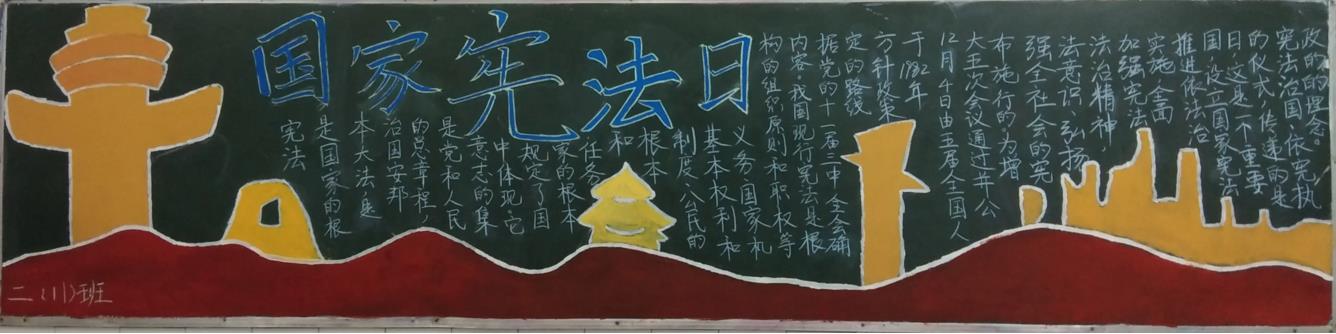 国家宪法日
宪法
是国家的根
本大法是
治国安邦
的总章程,
是党和人民
意志的集
中体现它
规定了国
家的根本
任务
和
根本
制度、公民的
基本权利和
义务、国家机
构的组织原则和职权等
内容。我国现行宪法是根
据党的十一届三中全会确
定的路线
方针政策
于1982年
12月4日由五届全国人
大五次会议通过并公
布施行的。为增
强全社会的宪
法意识、弘扬
法治精神,
加强宪法
实施全面
推进依法治
国,设立国家宪法
日,这是一不重要
的仪式,传递的是
宪法治国、依宪执
政的的理念。
二(1)班